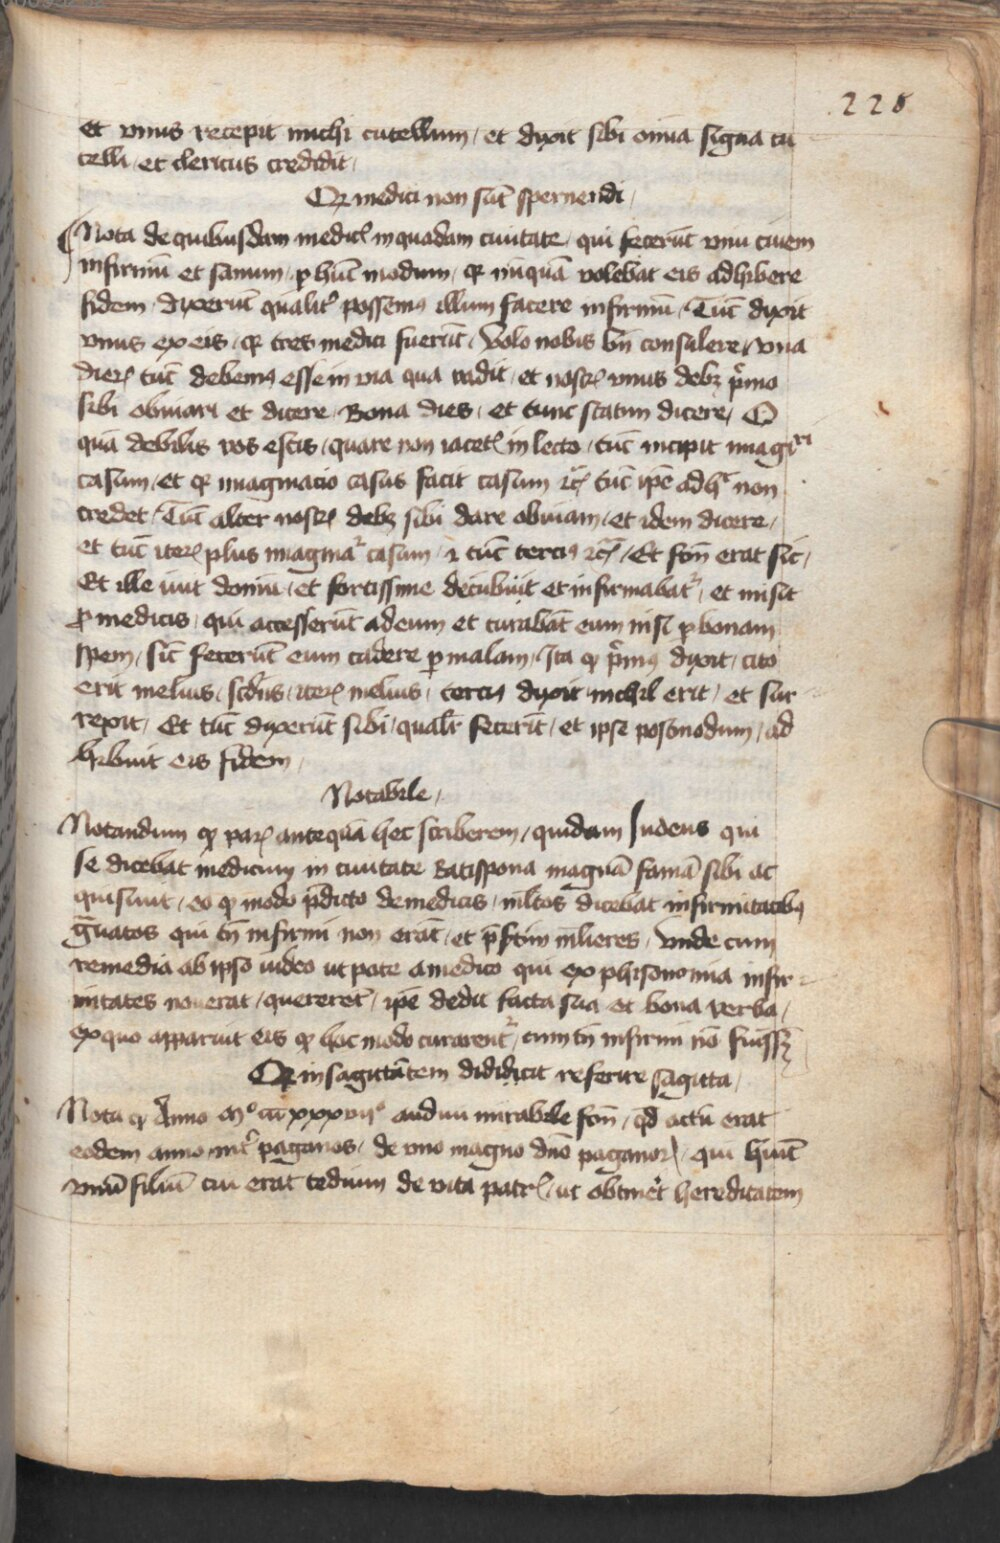 228
et vnus recepit michi cutellum / et dyxit sibi oi͞a signa cu
telli / et clericus credidit /
Qꝫ medici non su͞t spernendi /
Nota de quibusdam medic͛ in quadam ciuitate / qui fecerūt vnū ciuem
infirmū et sanum / ꝑ hūc modum / qꝛ nūquā volebat eis adhibere
fidem / dyxerūt qualit͛ possemꝰ illum facere infirmū / Tūc dyxit
vnus ex eis / qꝛ tres medici fuerūt / Volo nobis bn̄ consulere / vna
dierꝝ tūc debemꝰ esse in via qua vadit / et nostrꝝ vnus debꝫ p͛mo
sibi obuiari et dicere / Bona dies / et tunc statim dicere / O
quā debilis vos estis / quare non iacet͛ in lecto / tūc incipit imagi͛ri
casum / et qꝛ imaginacio casus facit casum ⁊c̄ tūc ip̄e adh͛ non
credet / Tūc alter nostrꝝ debꝫ sibi dare obuiam / et idem dicere /
et tūc iterꝝ plus imagina͛ casum / ⁊ tūc terciꝰ ⁊c̄ / Et fc̄m erat sic /
Et ille iuit domū / et fortissime decubuit et infirmabat͛ / et misit
ꝓ medicis / qui accesserūt ad eum et curabāt eum nisi ꝑ bonam
spem / sic̄ fecerūt eum cadere ꝑ malam / Ita ꝙ p͛mꝰ dyxit / cito
erit melius / sc̄dus / iterꝝ melius / terciꝰ dyxit nichil erit / et sur
rexit / Et tūc dyxerūt sibi / qualr̄ fecerīt / et ipse postmodum / ad
hibuit eis fidem /
Notabile /
Notandum ꝙ parꝝ antequā hec scriberem / quidam Iudeus qui
se dicebat medicum in ciuitate Ratispona magnā famā sibi ac
quisiuit / eo ꝙ modo p̄dicto de medicis / ml̄tos dicebat infirmitatibꝰ
g͞uatos qui tn̄ infirmi non erāt / et p̄sertim ml̄ieres / Vnde cum
remedia ab ipso iudeo utpote a medico qui ex phisonomia infir
mitates nouerat / quereret͛ / ip̄e dedit facta sua et bona verba /
ex quo apparuit eis ꝙ hoc modo curarent͛ / cum tn̄ infirmi nō fuissꝫ
Qꝫ in sagittātem dididicit referire sagitta /
Nota ꝙ Anno Mo cccc xxx viio audiui mirabile fc̄m / qd̄ actū erat
eodem anno int͛ paganos / de vno magno dn̄o paganorꝝ / qui h͞uit
vnū filiū cui erat tedium de vita patr͛ / ut obtin͛et hereditatem